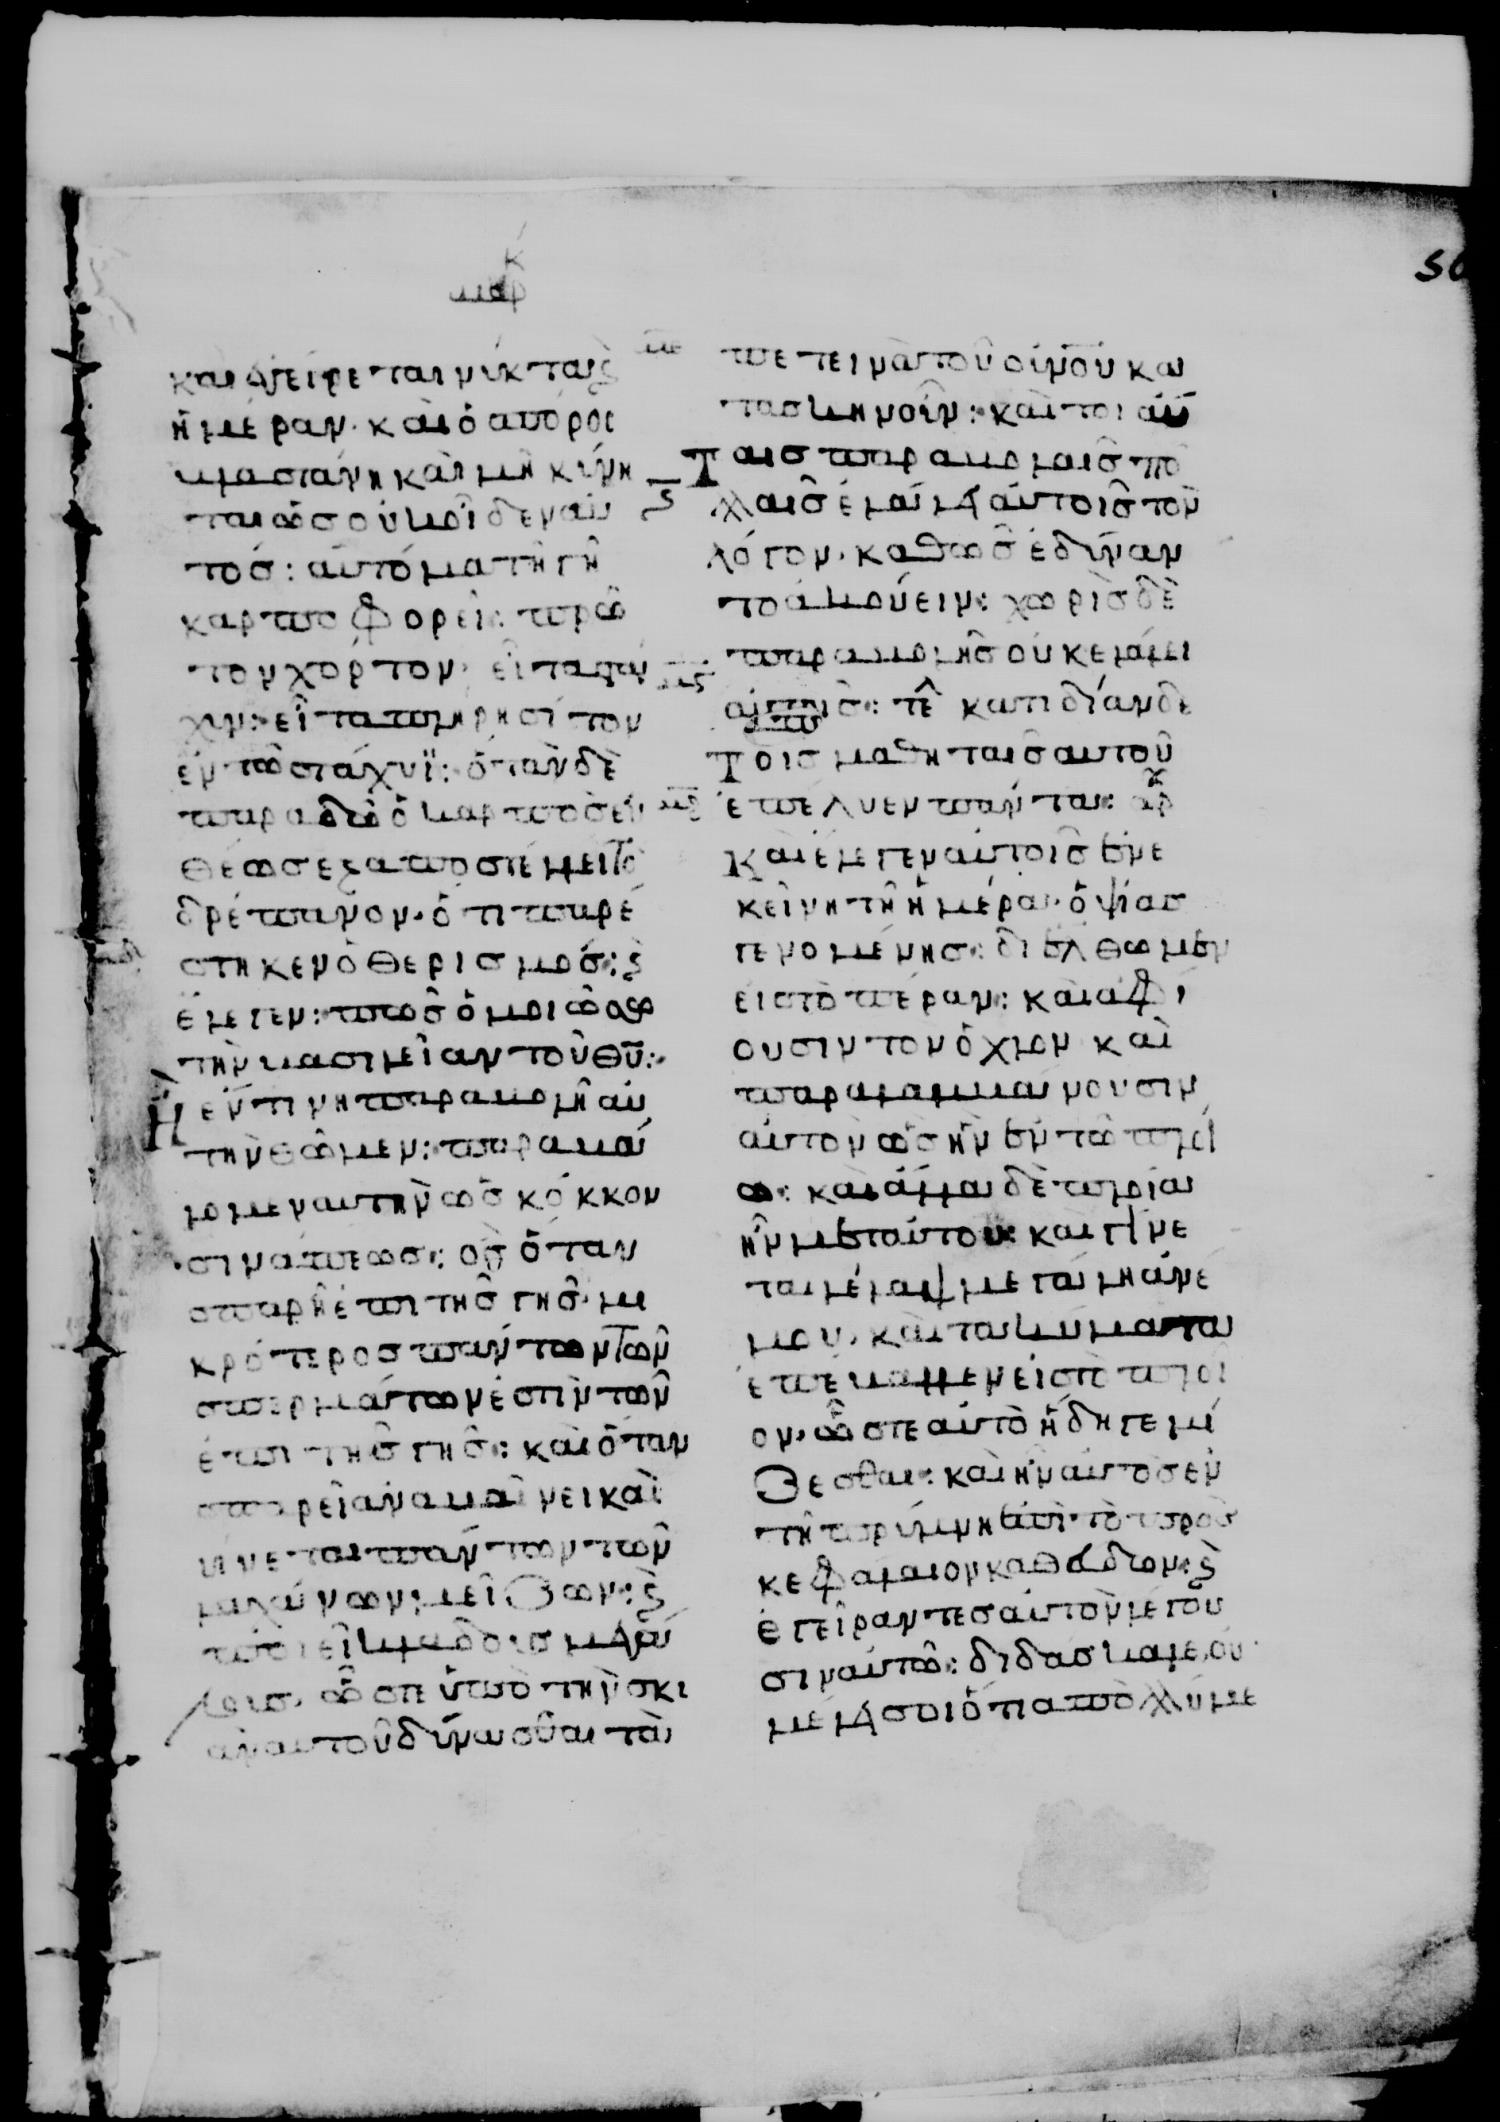 κ
μαρ
50
καὶ ἐγείρεται νύκτα ϛ
ἡμέραν· καὶ ὁ σπόρος
βλαστάνη καὶ μηκύνη
ται ὡς οὐκ οἶδεν αὐ
τόσ: αὐτόματη γῆ
καρποφορεῖ: πρῶ
τον χόρτον· εἶτα στά
χυν: εἶτα πλήρη σίτον
ἐν τῶ στάχυϊ: ὅταν δὲ
παραδῶ ὁ καρπὸσ εὐ
θέωσ εξαποστέλλει τὸ
δρέπανον· ὅτι παρέ
στηκεν ὁ θερισμός: ϛ
ἔλεγεν: πῶσ ὁμοιώσω
τὴν βασιλείαν τοῦ θ̅υ̅:
Ἢ ἐν τίνη παραβολῆ αὐ
τὴν θῶμεν: παραβά
λομεν αυτὴν ὡσ κόκκον
σινάπεωσ: ὃσ ὅταν
σπαρῆ ἐπι τῆσ γῆσ· μι
κρότεροσ πάντων τῶν
σπερμάτων ἐστὶν τῶν
ἐπι τῆσ γῆσ: καὶ ὅταν
σπαρεῖ ἀναβαίνει καὶ
γίνεται πάντων τῶν
λαχάνων: μείζων: ϛ
ποιεῖ κλάδουσ μεγά
λουσ· ὥστε ὑπὸ τὴν σκι
ὰν αυτοῦ δύνασθαι τὰ
πετεινὰ τοῦ οὐ̅νου κα
τασκηνοῖν: καὶ τοιαύ
Ταισ παραβολαισ πο
λλαισ ἐλάλει αὐτοῖσ τὸν
λόγον· καθὼσ ἐδύναν
το ἀκούειν: χωρὶσ δὲ
παραβολῆσ οὐκ ελάλει
αὐτοῖσ: τε κατιδίαν δὲ
Τοῖσ μαθηταῖσ αυτοῦ
ἐπέλυεν πάντα: αρχ
Καὶ ἔλεγεν αὐτοῖσ ἐν ἐ
κείνη τῆ ἡμέρα· ὀψίασ
γενομένησ: διέλθωμεν
εἰσ τὸ πέραν: καὶ ἀφί
ουσιν τον ὄχλον καὶ
παραλαμβάνουσιν
αὐτὸν ὡσ ἦν ἐν τῶ πλοί
ω: καὶ ἄλλα δὲ πλοῖα
ἦν μετ αὐτοῦ: καὶ γίνε
ται λέλαψ μεγάλη ἀνέ
μου· καὶ τα κύματα
ἐπέβαλλεν εἰσ τὸ πλοῖ
ον· ὥστε αὐτὸ ἤδη γεμί
ζεσθαι: καὶ ἦν αὐτὸσ ἐν
τῆ πρύμνη ἐπὶ τὸ προσ
κεφάλαιον καθεύδων: ϛ
ἐγείραντεσ αὐτὸν λέγου
σιν αὐτῶ: διδάσκαλε, οὐ
μέλει σοι ὅτι ἀπολλύμε